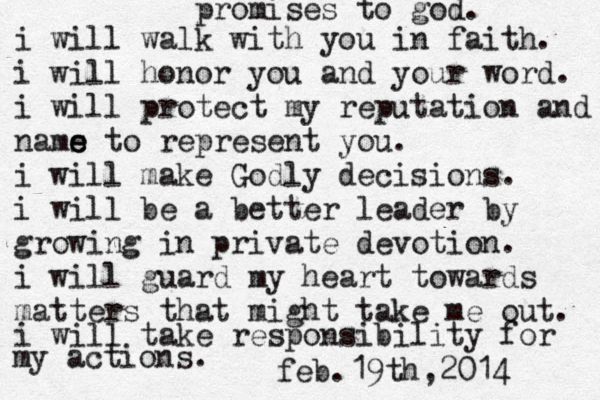 promises to god.
i will walk with you in faith.
i will honor you and your word.
i will protect my reputation and
name to represent you.
i will make Godly decisions.
i will be a better leader by
growing in private devotion.
i will guard my heart towards
matters that might take me out.
i will take responsibility for
my actions.
feb. 19th,2014